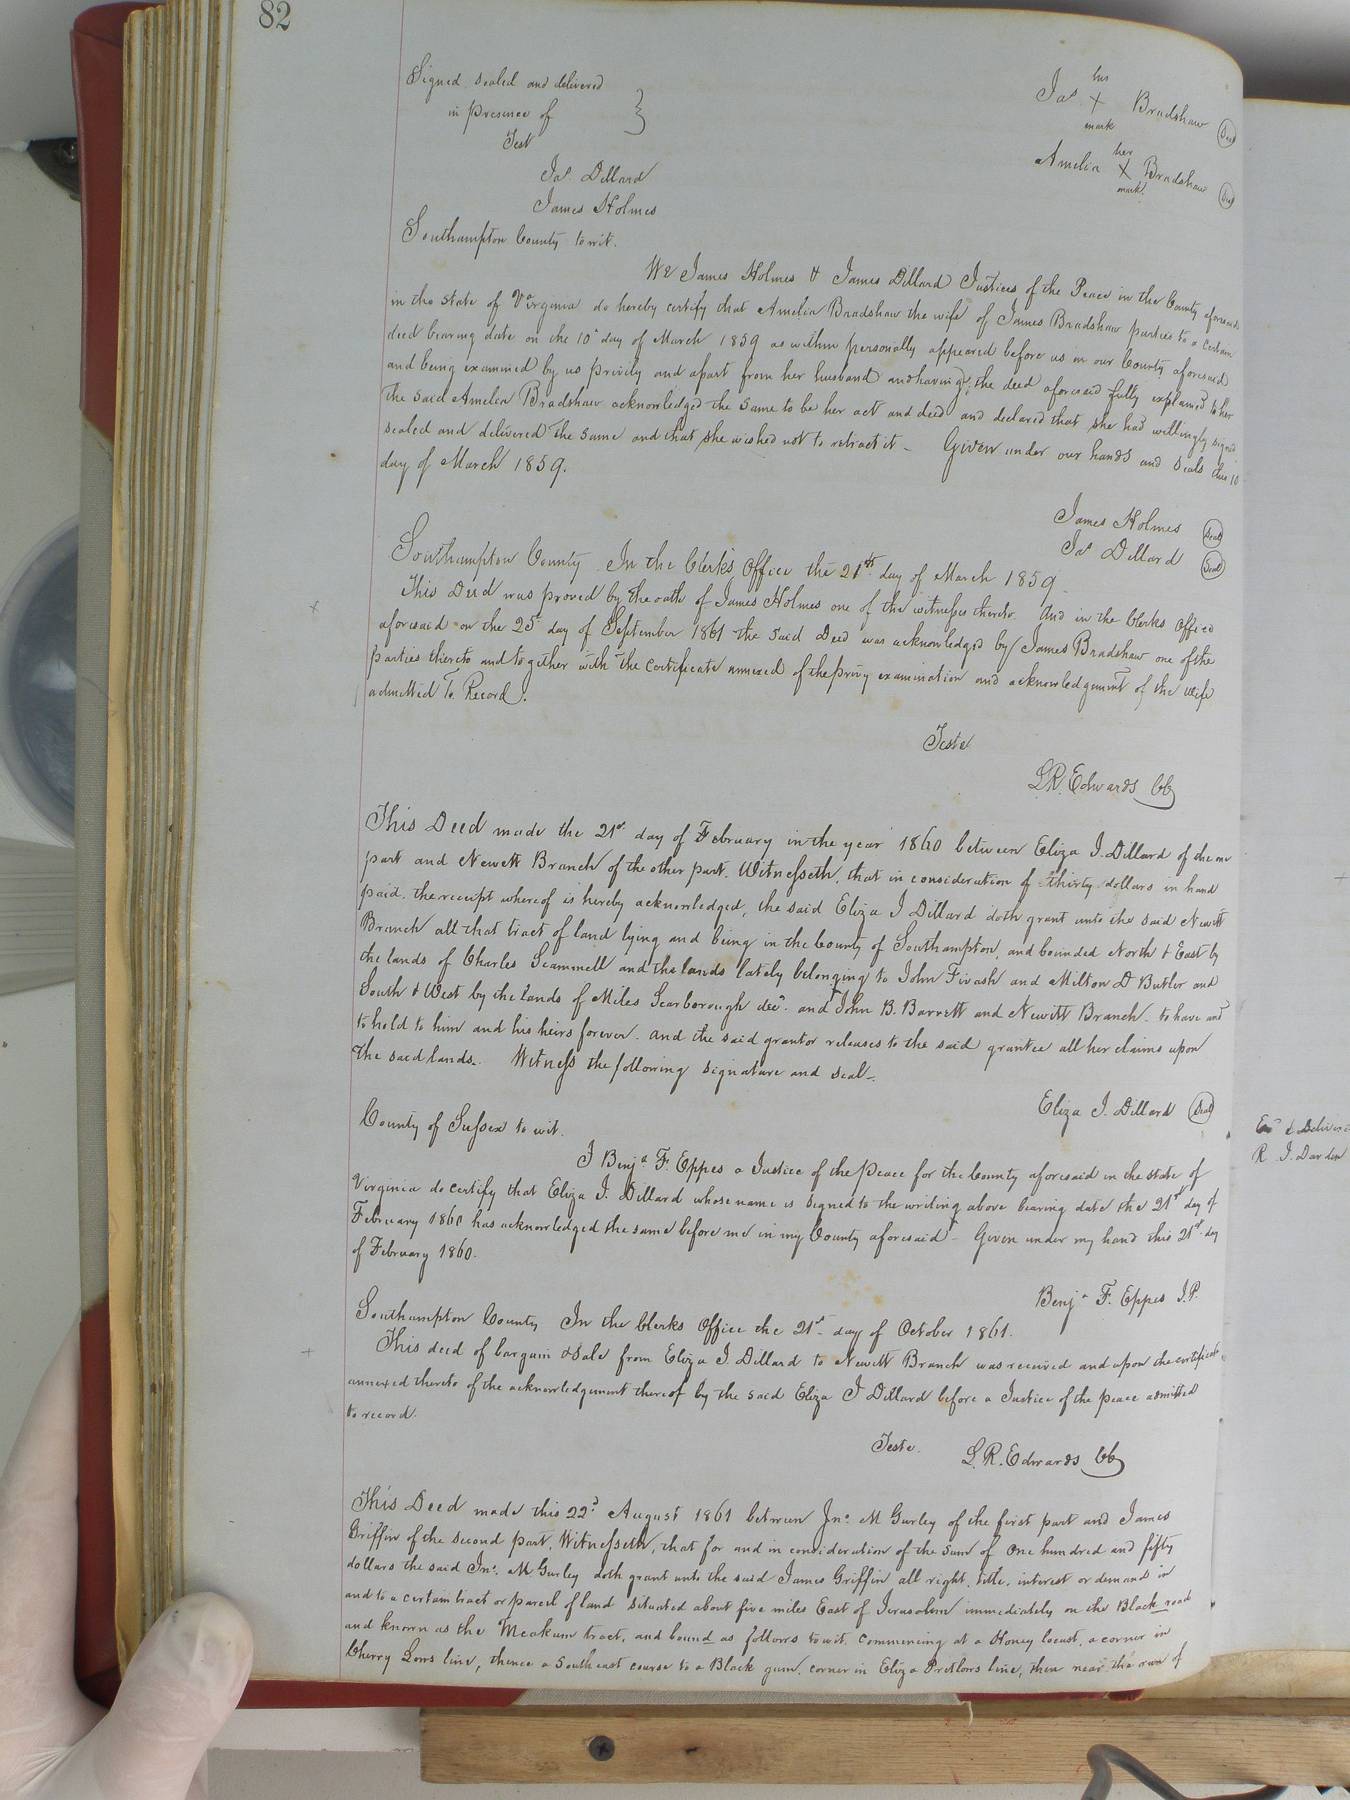 82
Signed sealed and delivered
in presence of
Test
Jas Dillard
James Holmes
his
Jas X Bradshaw Seal
mark
her
Amelia X Bradshaw Seal
mark
Southampton County to wit.
We James Holmes & James Dillard Justices of the Peace in the County aforesaid
in the State of Virginia do hereby certify that Amelia Bradshaw the wife of James Bradshaw parties to a certain
deed bearing date on the 10th day of March 1859 as within personally appeared before us in our County aforesaid
and being examined by us privily and apart from her husband and having the deed aforesaid fully explained to her
the said Amelia Bradshaw acknowledged the same to be her act and deed and declared that she had willingly signed
sealed and delivered the same and that she wished not to retract it - Given under our hands and seals this 10
day of March 1859.
James Holmes Seal
Jas Dillard Seal
Southampton County In the Clerks Office the 21st day of March 1859
This Deed was proved by the oath of James Holmes one of the witnesses thereto. And in the Clerks Office
aforesaid on the 25 day of September 1861 the said Deed was acknowledged by James Bradshaw one of the
parties thereto and together with the certificate annexed of the privy examination and acknowledgment of the wife
admitted To Record.
Teste
L.R. Edwards CC
This Deed made the 21st day of February in the year 1860 between Eliza J. Dillard of the one
part and Newitt Branch of the other part. Witnesseth, that in consideration of thirty dollars in hand
paid. the receipt whereof is hereby acknowledged, the said Eliza J Dillard doth grant unto the said Newitt
Branch all that tract of land lying and being in the County of Southampton, and bounded North & East by
the lands of Charles Scammell and the lands lately belonging to John Fivash and Milton D Butler and
South & West by the lands of Miles Scarborough decd. and John B. Barrett and Newitt Branch - to have and
to hold to him and his heirs forever. and the said grantor releases to the said grantee all her claims upon
the said lands. Witness the following signature and seal -
Eliza J. Dillard Seal
County of Sussex to wit.
I Benja F. Eppes a Justice of the peace for the County aforesaid in the state of
Virginia do certify that Eliza J. Dillard whose name is signed to the writing above bearing date the 21st day of
February 1860 has acknowledged the same before me in my County aforesaid - Given under my hand this 21st day
of February 1860.
Benja F. Eppes J.P.
Southampton County In the Clerks Office the 21st day of October 1861.
This deed of bargain & Sale from Eliza J. Dillard to Newitt Branch was received and upon the certificate
annexed thereto of the acknowledgement thereof by the said Eliza J Dillard before a Justice of the peace admitted
to record.
Teste. L.R. Edwards CC
This Deed made this 22d August 1861 between Jno. M Gurley of the first part and James
Griffin of the second part, Witnesseth, that for and in consideration of the sum of One hundred and fifty
dollars the said Jno. M Gurley doth grant unto the said James Griffin all right, title, interest or demands in
and to a certain tract or parcel of land situated about five miles East of Jerusalem immediately on the Black road
and known as the Meakum tract, and bound as follows to wit. Commencing at a Honey locust, a corner in
Cherry Lows line, thence a South east course to a Black gum, corner in Eliza Pretlows line, then near the run of
Exd & Deliver
R. J. Darden